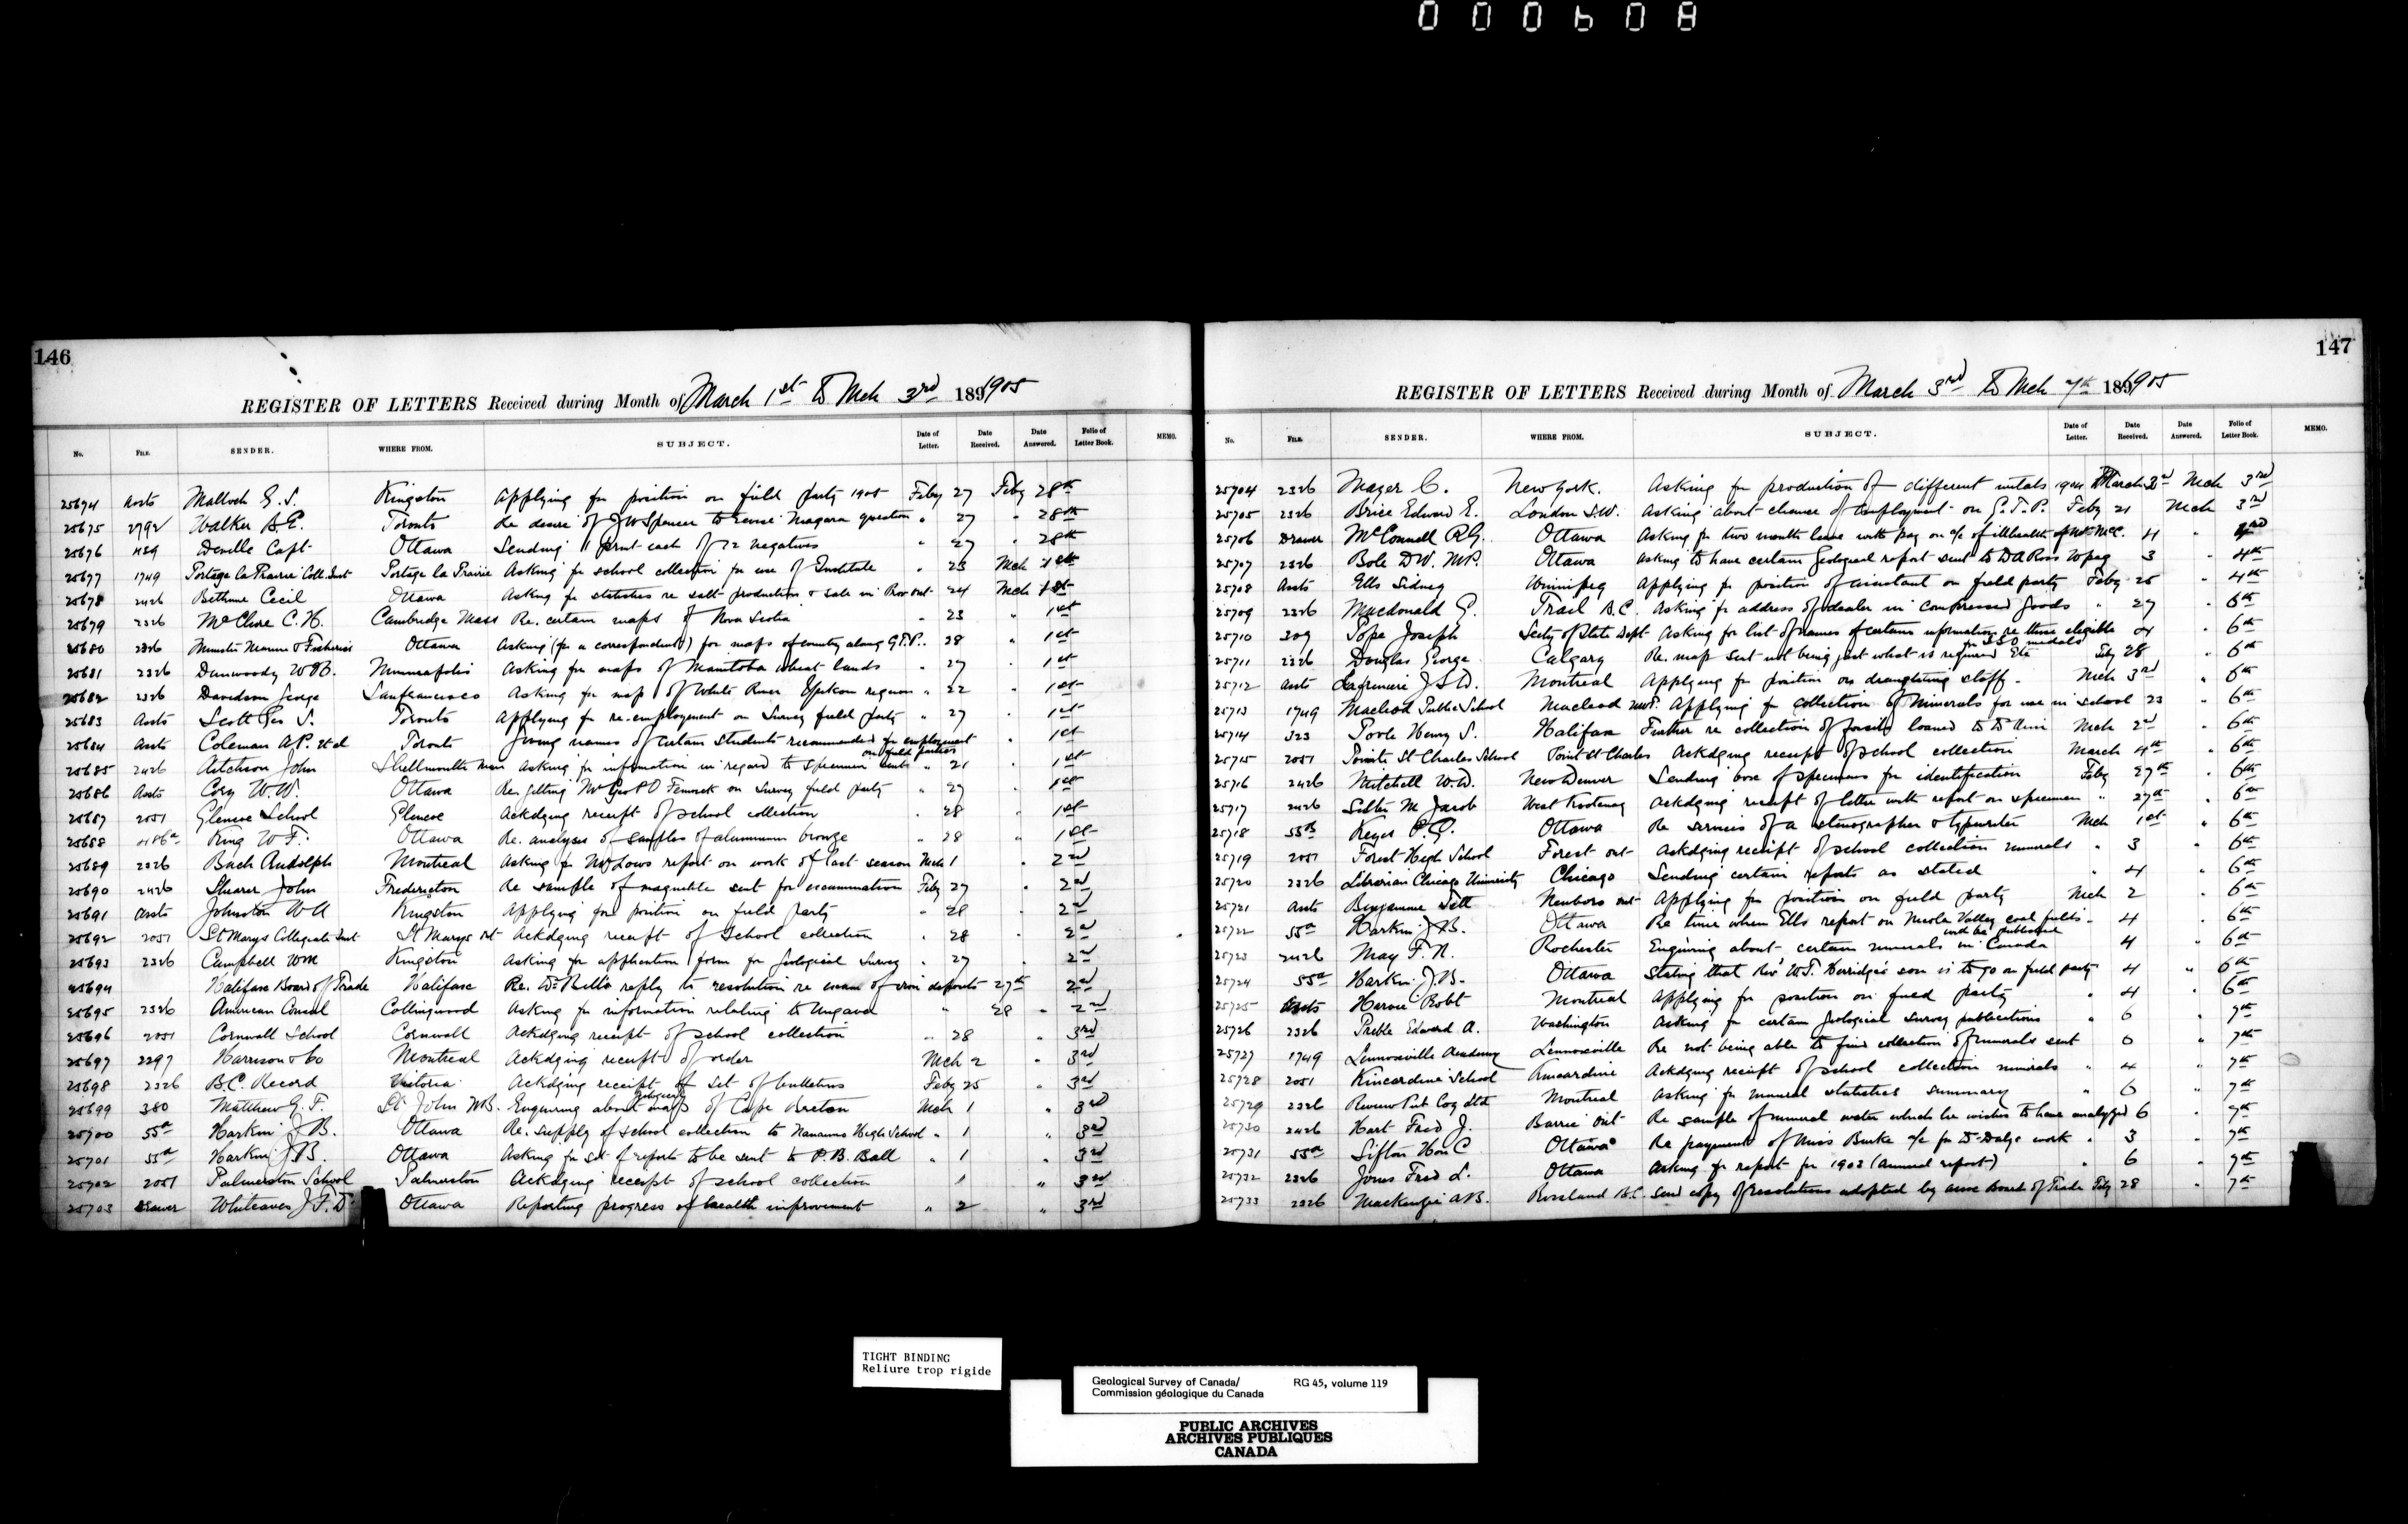 146
REGISTER OF LETTERS Received during Month of March 1st to Mch 3rd 1891905
No. FILE. SENDER. WHERE FROM. SUBJECT. Date of Letter. Date Received. Date Answered. Folio of Letter Book. MEMO.
25674 Assts Malloch G. S. Kingston Applying for position on field party 1905 Feby 27 Feby 28th
25675 2792 Walker B.E. Toronto Re desire of J W Spencer to Niagara question " 27 " 28th
25676 Deville Capt Ottawa Sending 1 print each of 72 negatives " 27 " 28th
25677 1749 Portage la Prairie Coll. Inst Portage la Prairie Asking for school collection for use of Institute " 25 Mch 1st
25678 2426 Bethune Cecil Ottawa Asking for statistics re salt production & sale in Prov Ont " 24 Mch 1st
25679 2326 McClure C. H. Cambridge Mass Re. certain maps of Nova Scotia " 23 " 1st
25680 2326 Minister Marine & Fisheries Ottawa Asking (for a correspondent) for maps of country along G.T.P. " 28 " 1st
25681 2326 Dunwoody W B. Minneapolis Asking for maps of Manitoba wheat lands " 27 " 1st
25682 2326 Davidson George Sanfrancisco Asking for map of White River Yukon region " 22 " 1st
25683 Assts Scott Geo S. Toronto Applying for re-employment on Survey field party " 27 " 1st
25684 Assts Coleman A.P. et al Toronto Giving names of certain students recommended for employment on field parties " 1st
25685 2426 Aitchison John Shellmouth Man Asking for information in regard to specimen sent " 21 " 1st
25686 Assts Cory W. W. Ottawa Re. getting Mr Geo P D on Survey field party " 27 " 1st
25687 2051 Glencoe School Glencoe Ackdging receipt of school collection " 28 " 1st
25688 486a King W F. Ottawa Re. analysis of samples of aluminum bronze " 28 " 1st
25689 2326 Bach Rudolph Montreal Asking for Mr Lows report on work of last season Mch 1 " 2nd
25690 2426 Shearer John Fredericton Re sample of magnetite sent for examination Feby 27 " 2nd
25691 Assts Johnston W A Kingston Applying for position on field party " 28 " 2nd
25692 2051 St Marys Collegiate Inst St Marys Ont Ackdging receipt of School collection " 28 " 2nd
25693 2326 Campbell Wm Kingston Asking for application form for Geological Survey " 27 " 2nd
25694 Halifax Board of Trade Halifax Re. Dr Bells reply to resolution re exam of iron deposits 27th " 2nd
25695 2326 American Consul Collingwood Asking for information relating to Ungava " 28 " 2nd
25696 2051 Cornwall School Cornwall Ackdging receipt of school collection " 28 " 3rd
25697 2297 Harrison & Co Montreal Ackdging receipt of order Mch 2 " 3rd
25698 2326 B.C. Record Victoria Ackdging receipt of set of bulletins Feby 25 " 3rd
25699 380 Matthew G. F. St. John N.B. Enquiring about geological map of Cape Breton Mch 1 " 3rd
25700 55a Harkin J B. Ottawa Re. supply of school collection to Nanaimo High School " 1 " 3rd
25701 55a Harkin J B. Ottawa Asking for set of reports to be sent to P. B. Ball " 1 " 3rd
25702 2051 Palmerston School Palmerston Ackdging receipt of school collection 1 " 3rd
25703 Drawer Whiteaves J. F. Dr Ottawa Reporting progress of health improvement " 2 " 3rd
147
REGISTER OF LETTERS Received during Month of March 3rd to Mch 7th 1891905
No. FILE. SENDER. WHERE FROM. SUBJECT. Date of Letter. Date Received. Date Answered. Folio of Letter Book. MEMO.
25704 2326 Mazer C. New York. Asking for production of different metals 1904 March 2nd Mch 3rd
25705 2326 Brice Edward E. London S.W. Asking about chance of employment on G.T.P. Feby 21 Mch 3rd
25706 Drawer McConnell R.G. Ottawa Asking for two month leave with pay on a/c of illhealth of Mr McC. 4 "
25707 2326 Bole D W. M.P. Ottawa Asking to have certain Geological report sent to D A Ross Wpeg 3 " 4th
25708 Assts Ells Sidney Winnipeg Applying for position of assistant on field party Feby 25 " 4th
25709 2326 Macdonald G. Trail B.C. Asking for address of dealer in compressed foods " 27 " 6th
25710 209 Pope Joseph Secty of State Dept Asking for list of names & certain information re those eligible for ISO medals 4 " 6th
25711 2326 Douglas George Calgary Re. map sent not being just what is required Etc Feby 28 " 6th
25712 Assts J S W. Montreal Applying for position on draughting staff. Mch 3rd " 6th
25713 1749 Macleod Public School Macleod NWT. Applying for collection of Minerals for use in school 23 " 6th
25714 323 Poole Henry S. Halifax Further re collection of fossils loaned to him Mch 2nd " 6th
25715 2051 Point St Charles School Point St Charles Ackdging receipt of school collection March 4th " 6th
25716 2426 Mitchell W.W. New Denver Sending box of specimens for identification Feby 27th " 6th
25717 2426 M Jacob West Kootenay Ackdging receipt of letter with report on specimen " 27th " 6th
25718 55B Keyes P.G. Ottawa Re services of a stenographer & typewriter Mch 1st " 6th
25719 2051 Forest High School Forest Ont Ackdging receipt of school collection minerals " 3 " 6th
25720 2326 Librarian Chicago University Chicago Sending certain reports as stated " 4 " 6th
25721 Assts Benjamin Newboro Ont Applying for position on field party Mch 2 " 6th
25722 55a Harkin J B. Ottawa Re time when Ells report on Nicola Valley coal fields will be published 4 " 6th
25723 2426 May F. N. Rochester Enquiring about certain minerals in Canada 4 " 6th
25724 55a Harkin J.B. Ottawa Stating that Revd W.T. Herridges son is to go on field party 4 " 6th
25725 Assts Harvie Robt Montreal Applying for position on field party " 4 " 6th
25726 2326 Preble Edward A. Washington Asking for certain Geological Survey publications " 6 " 7th
25727 1749 Lennoxville Academy Lennoxville Re not being able to find collection of minerals sent 6 " 7th
25728 2051 Kincardine School Kincardine Ackdging receipt of school collection minerals " 4 " 7th
25729 2326 Review Pub Coy Ltd Montreal Asking for mineral statistics summary " 6 " 7th
25730 2426 Hart Fred J. Barrie Ont Re sample of mineral water which he wishes to have analyzed 6 " 7th
25731 55a Sifton Hon C Ottawa Re payment of Miss Burke a/c for Dr Dalys work " 3 " 7th
25732 2326 Jones Fred L. Ottawa Asking for report for 1903 (annual report) " 6 " 7th
25733 2326 Mackenzie A B. Rossland B.C. Send copy of resolutions adopted by Board of Trade Feby 28 " 7th
TIGHT BINDING
Reliure trop rigide
Geological Survey of Canada/ RG 45, volume 119
Commission géologique du Canada
PUBLIC ARCHIVES
ARCHIVES PUBLIQUES
CANADA